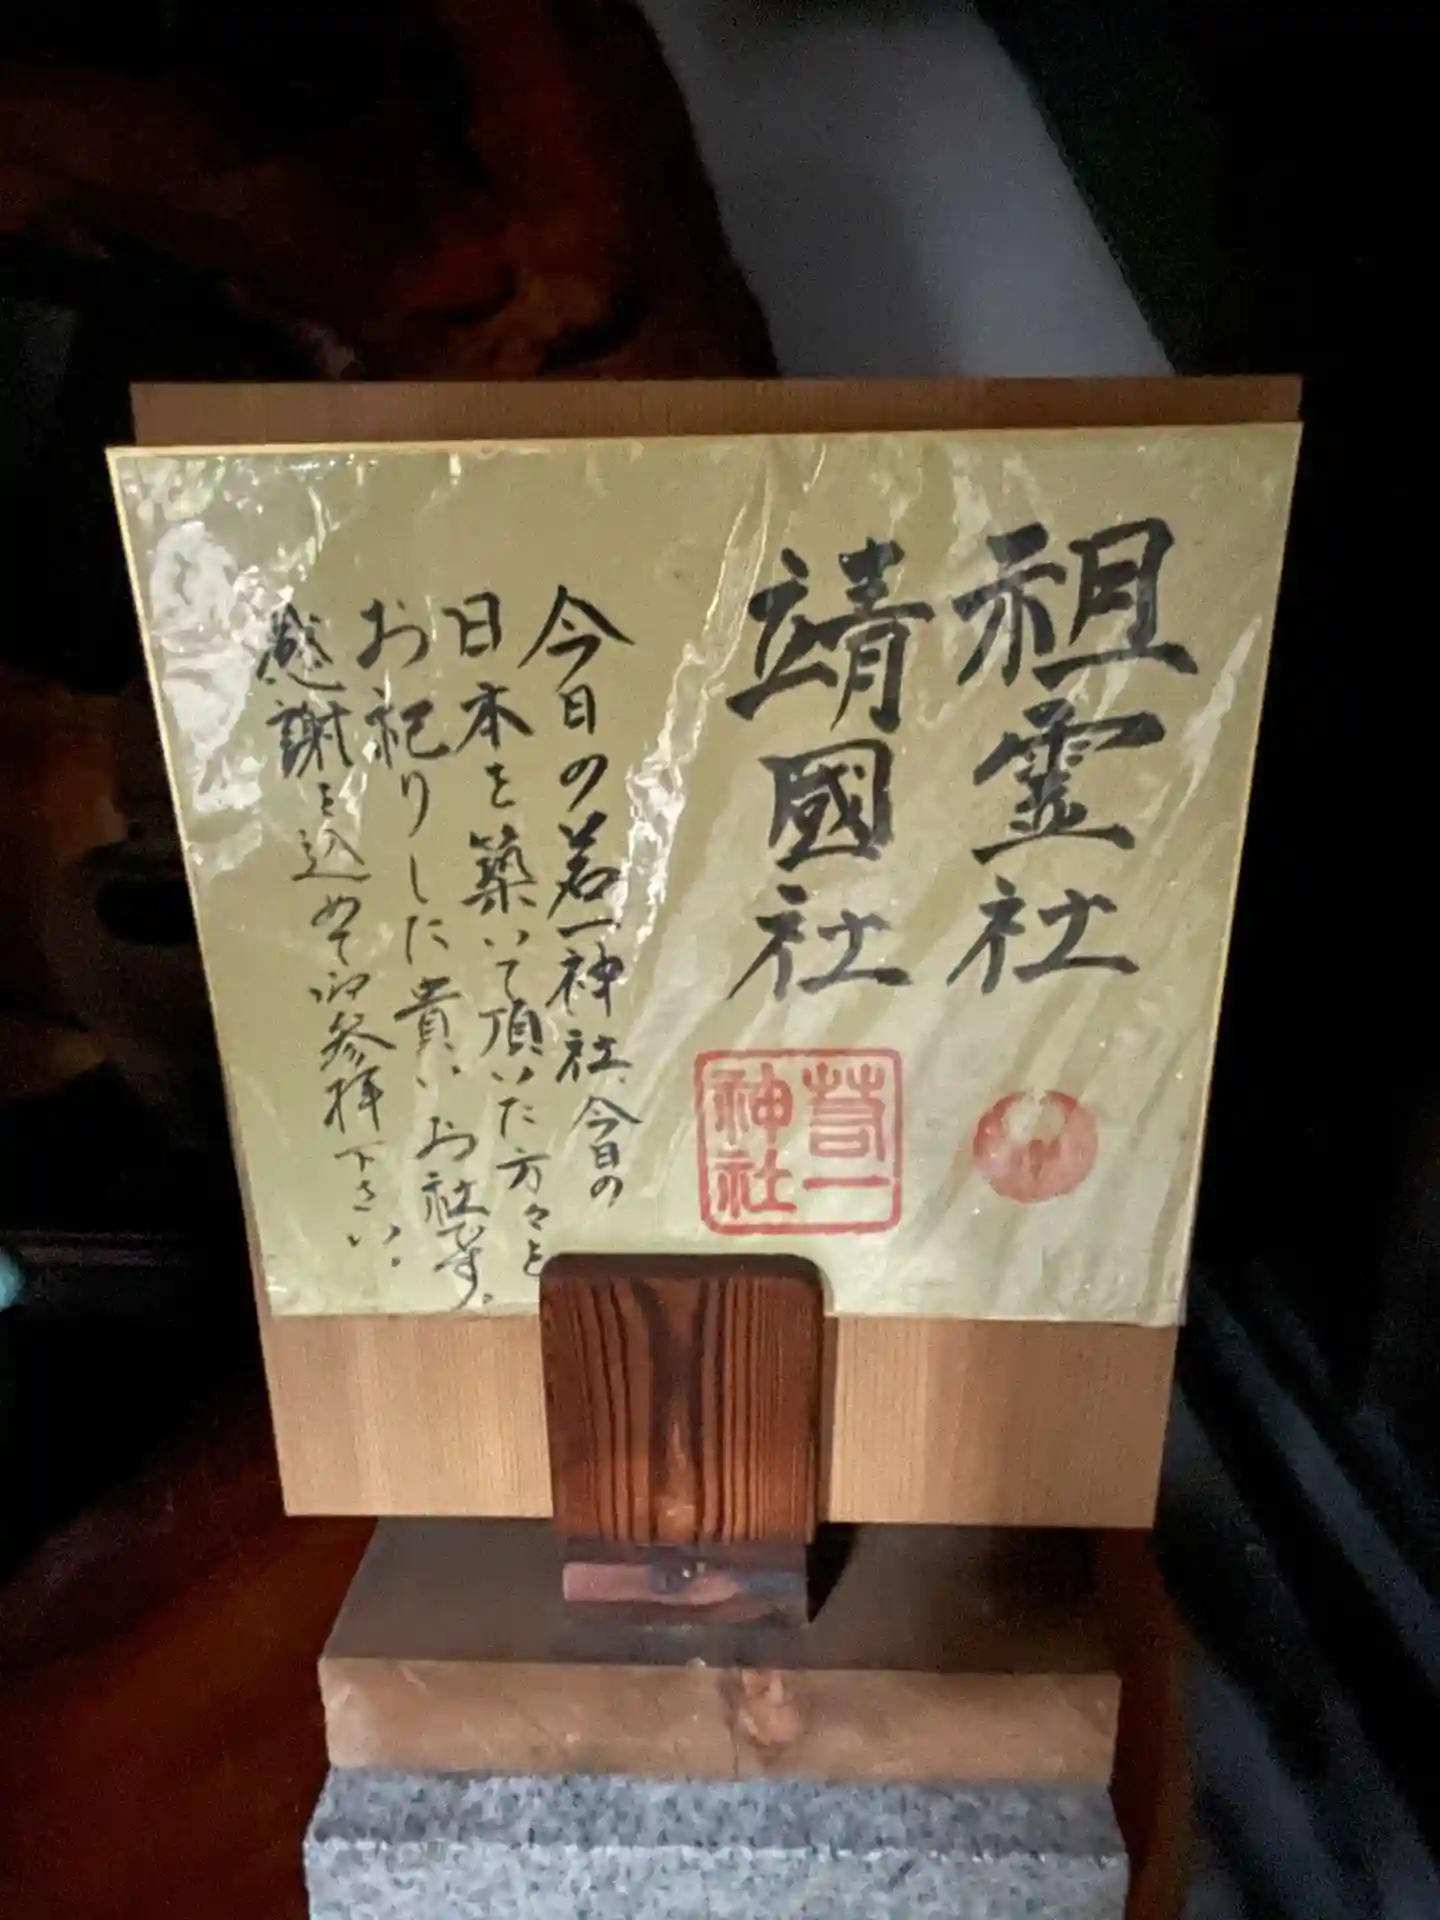 祖霊社
靖國社
今日の若一神社、今日の
日本を築いて頂いた方々を
お祀りした貴いお社です。
感謝を込めて御参拝下さい。
若一
神社